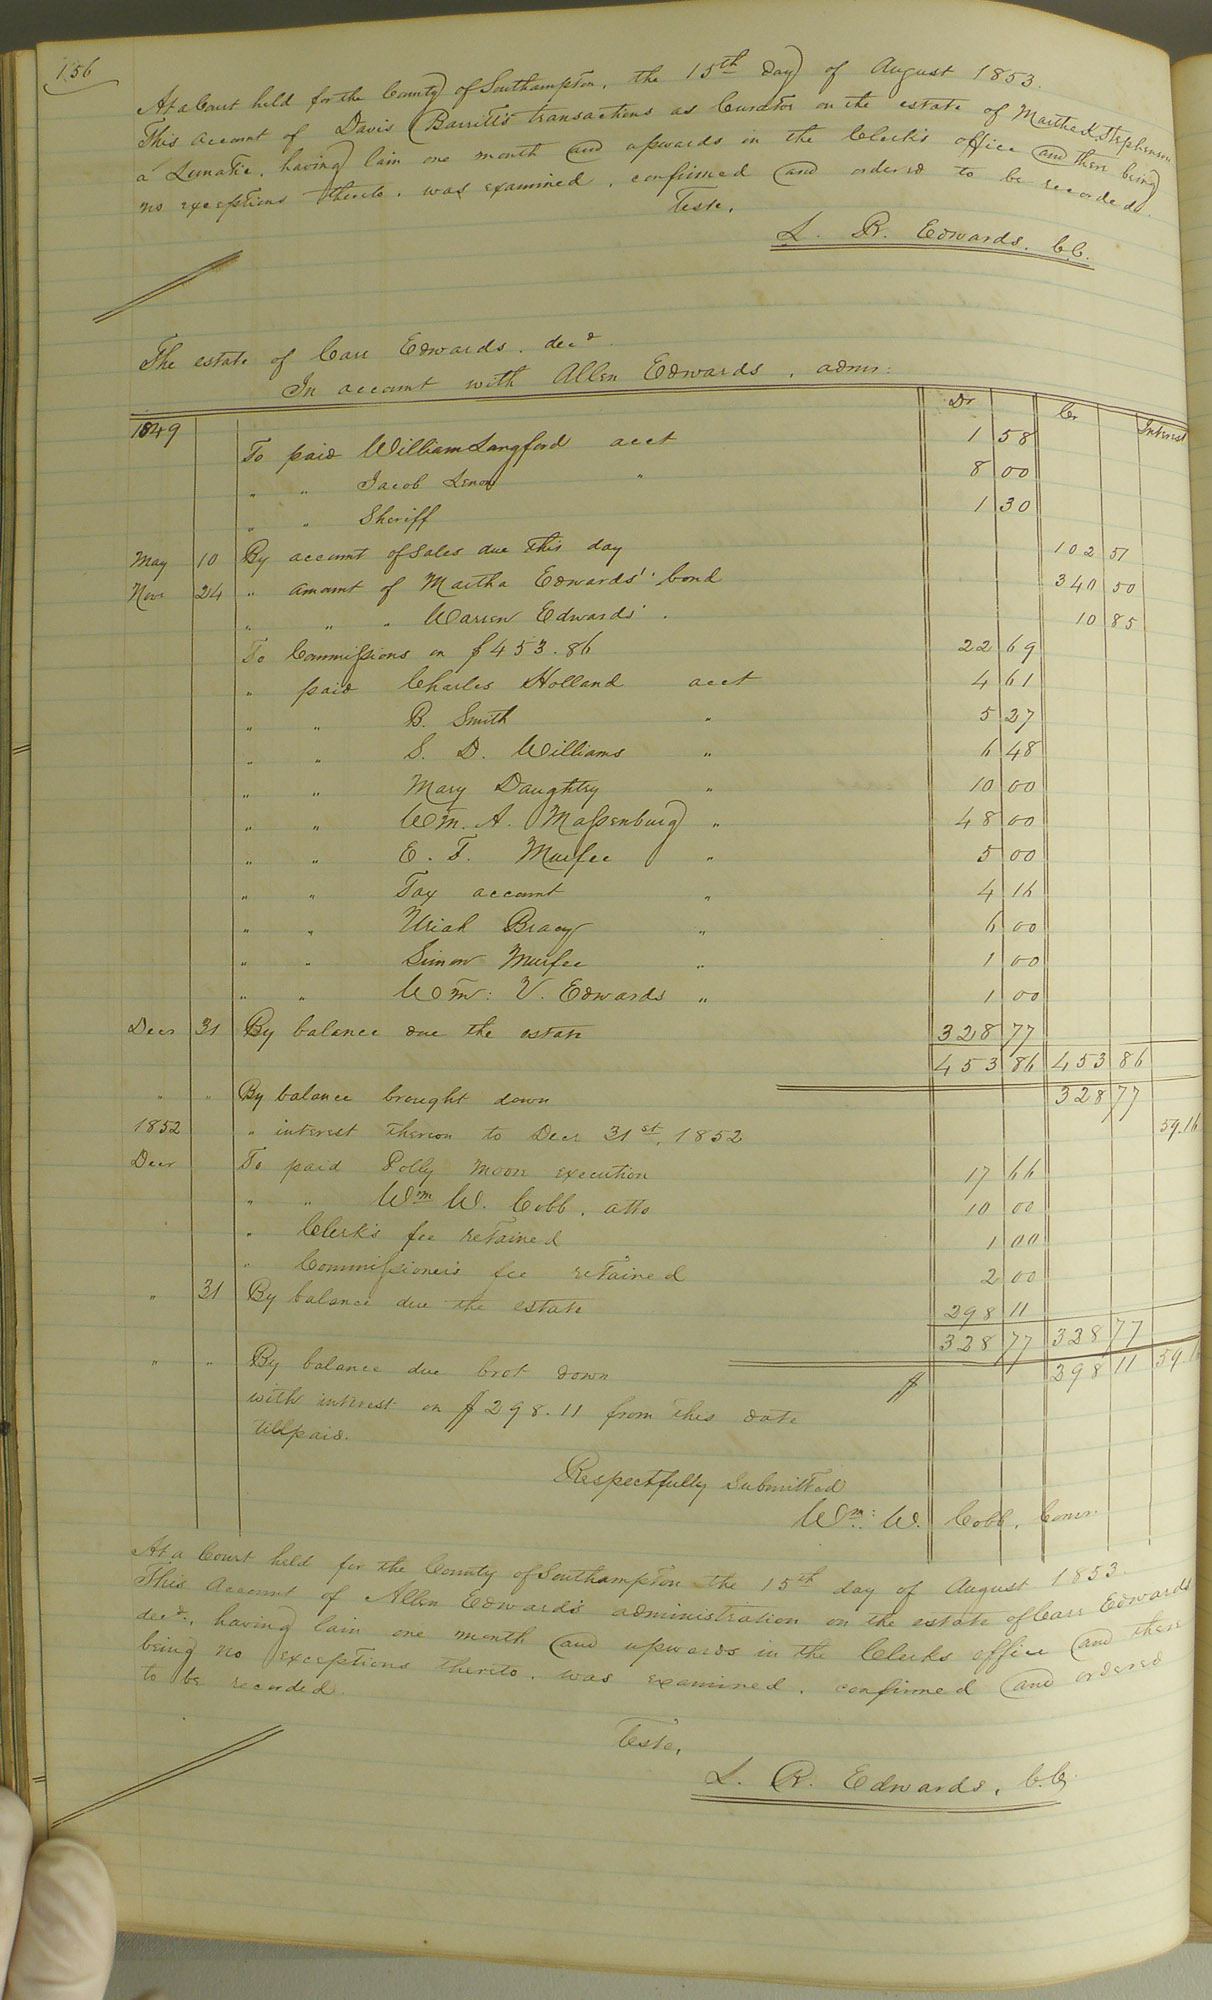 156
At a Court held for the County of Southampton, the 15th day of August 1853.
This account of Davis Barrett's transactions as Curator on the estate of Martha Stephenson
a Lunatic, having lain one month and upwards in the Clerk's office and there being
no exceptions thereto, was examined, confirmed and ordered to be recorded.
Teste,
L. R. Edwards. C.C.
The estate of Carr Edwards. decd.
In account with Allen Edwards, admr:
Dr Cr Interest
1849 To paid William Langford acct 1 58
" " Jacob " 8 00
" " Sheriff 1 30
May 10 By account of Sales due this day 102 51
Nov 24 " amount of Martha Edwards' bond 340 50
" " " Warren Edwards' . 10 85
To Commissions on $453.86 22 69
" paid Charles Holland acct 4 61
" " B. Smith " 5 27
" " S. D. Williams " 6 48
" " Mary Daughtry " 10 00
" " Wm. A. Massenburg " 48 00
" " E. T. Murfee " 5 00
" " Tax account " 4 16
" " Uriah Bracy " 6 00
" " Simon Murfee " 1 00
" " Wm: V. Edwards " 1 00
Decr 31 By balance due the estate 328 77
453 86 453 86
" " By balance brought down 328 77
1852 " interest thereon to Decr 31st, 1852 59.16
Decr To paid Polly Moore execution 17 66
" " Wm W. Cobb, atto 10 00
" Clerk's fee retained 1 00
" Commissioner's fee retained 2 00
" 31 By balance due the estate 298 11
328 77 328 77
" " By balance due brot down $ 298 11 59.16
with interest on $298.11 from this date
till paid.
Respectfully Submitted
Wm: W. Cobb, Comr.
At a Court held for the County of Southampton the 15th day of August 1853.
This Account of Allen Edwards's administration on the estate of Carr Edwards
decd., having lain one month and upwards in the Clerks office and there
being no exceptions thereto, was examined, confirmed and ordered
to be recorded.
Teste,
L. R. Edwards, C.C.